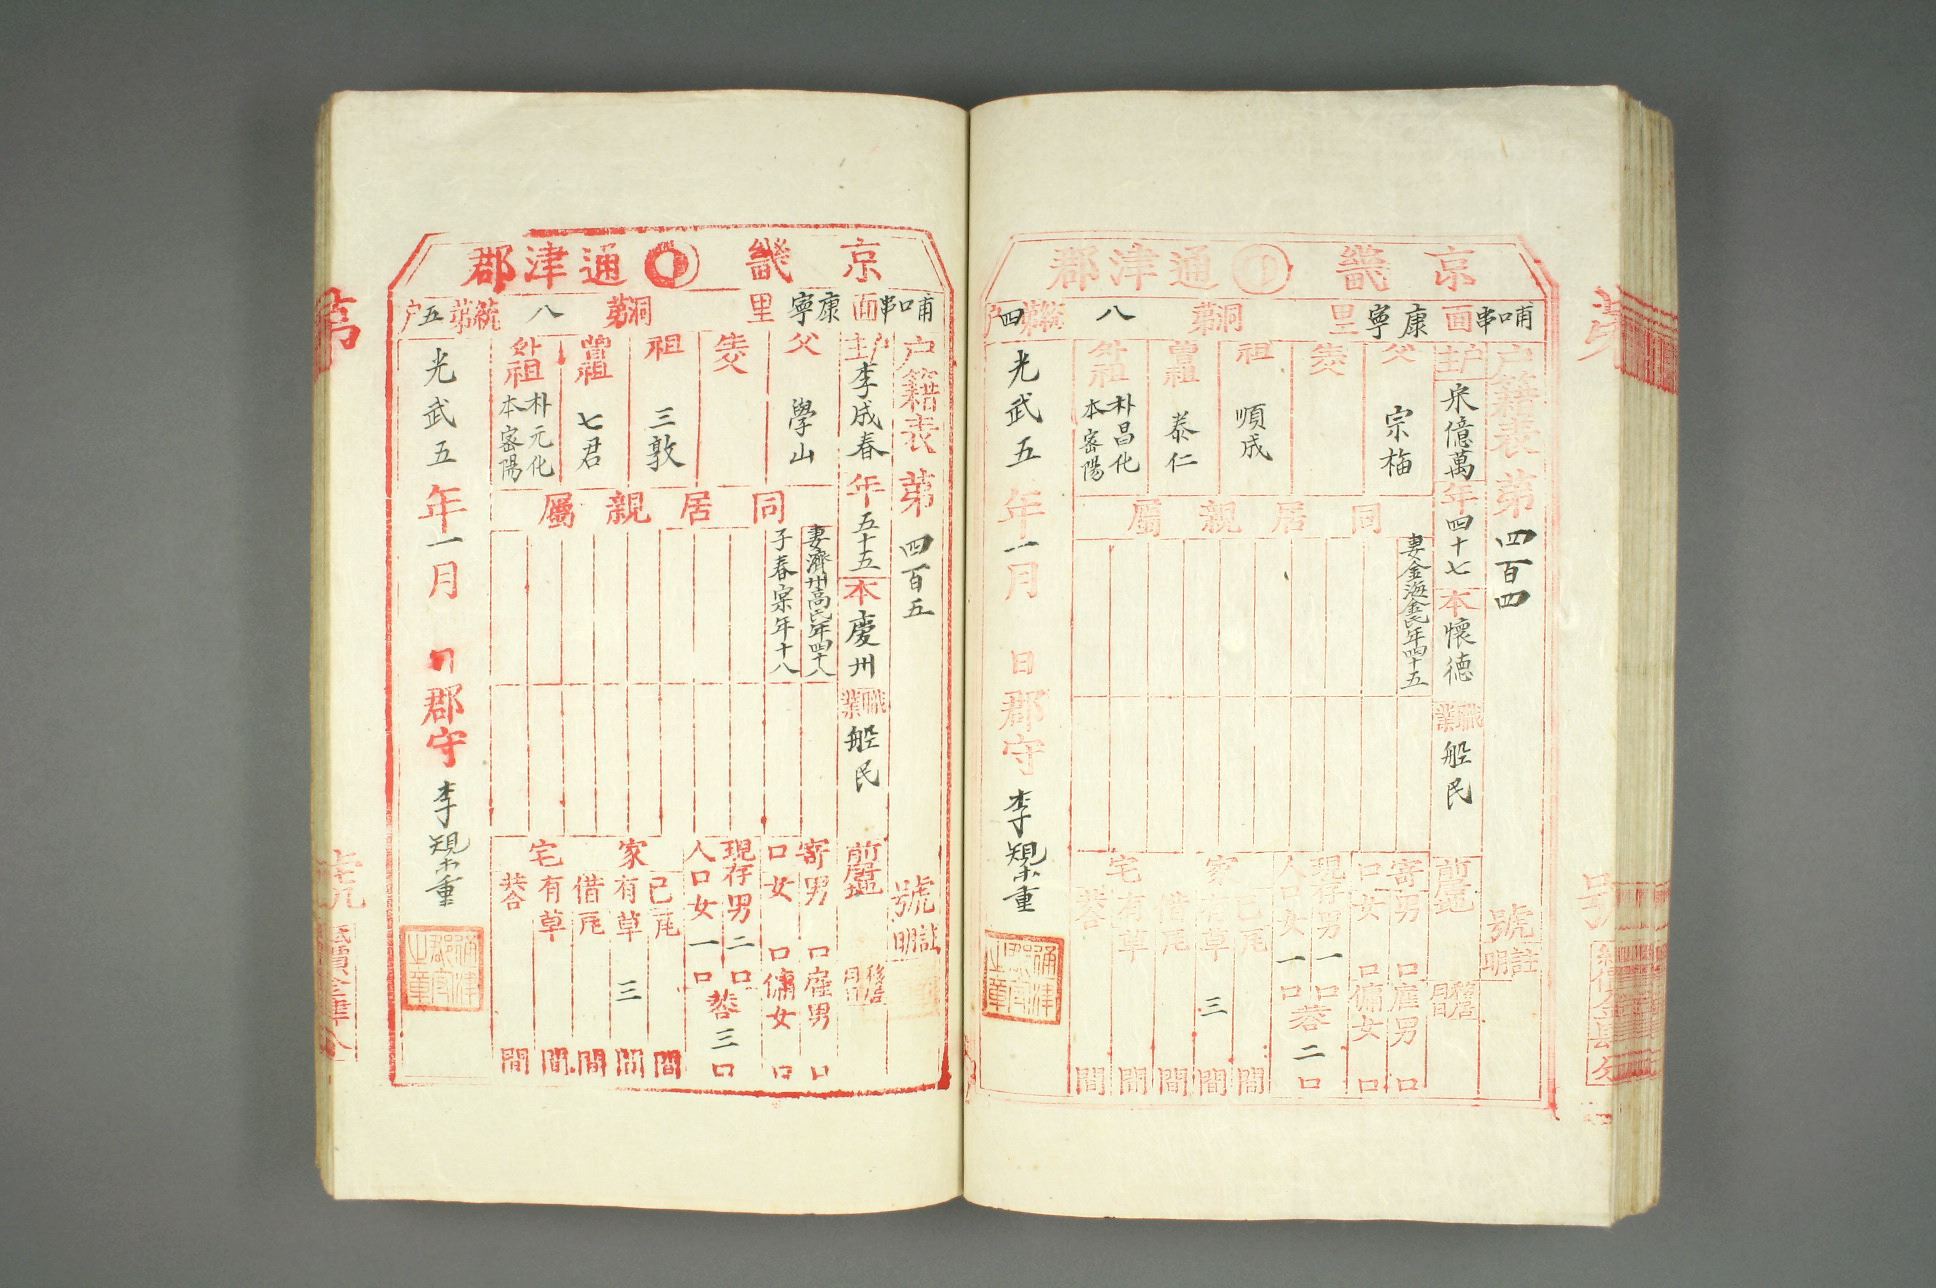 京畿 通津郡
哺口串面 康寧里 洞第八統第四户
户籍表第四百四號
户主 宋億萬 年四十七 本懷德 職業 船民 前居地 移居月日
註明
父 宗梅
生父
祖 順成
曾祖 泰仁
外祖 朴昌化 本密陽
同居親屬
妻金海金氏年四十五
寄口 男口 女口
雇男口 傭女口
現存人口 男一口 女一口 共二口
家宅 己有 瓦 間 草三間
借有 瓦 間 草 間
共合 間
光武五年一月 日 郡守 李槼重
通津郡守之章
京畿 通津郡
哺口串面 康寧里 洞第八統第五户
户籍表第四百五號
户主 李成春 年五十五 本慶州 職業 船民 前居地 移居月日
註明
父 學山
生父
祖 三敦
曾祖 七君
外祖 朴元化 本密陽
同居親屬
妻濟州高氏年四十八
子春宲年十八
寄口 男口 女口
雇男口 傭女口
現存人口 男二口 女一口 共三口
家宅 己有 瓦 間 草三間
借有 瓦 間 草 間
共合 間
光武五年一月 日 郡守 李槼重
通津郡守之章